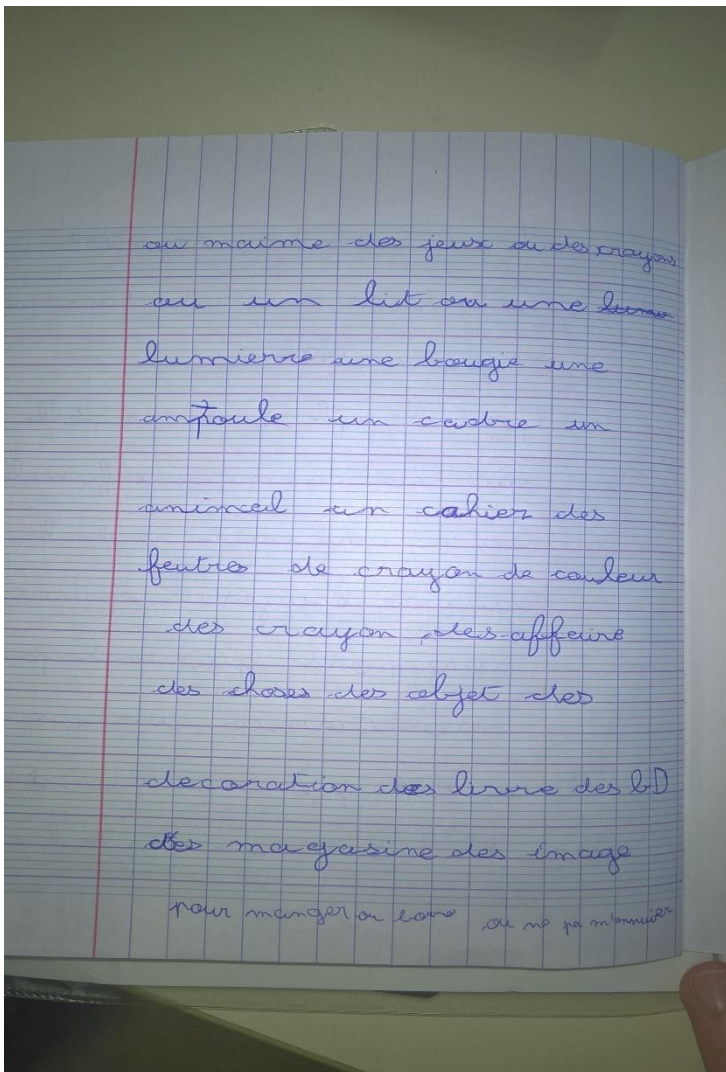 ou maime des jeux ou des crayons
ou un lit ou une
lumierre une bougie une
ampoule un cadre un
animal un cahier des
feutres de crayon de couleur
des crayon des affaire
des choses des objet des
decoration des livre des bD
des magasine des image
pour manger ou boire ou ne pa m'ennuier